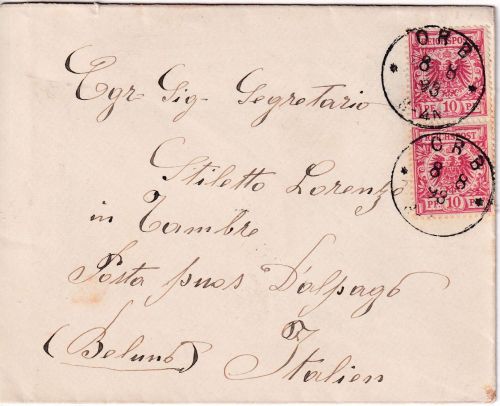 ORB
8 8
98
REICHSPOST
PF 10 PF
ORB
8 8
98
REICHSPOST
PF 10 PF
Egr Sig. Segretario
Stiletto Lorenzo
in Tambre
Posta puos D'alpago
(Beluno)
Italien